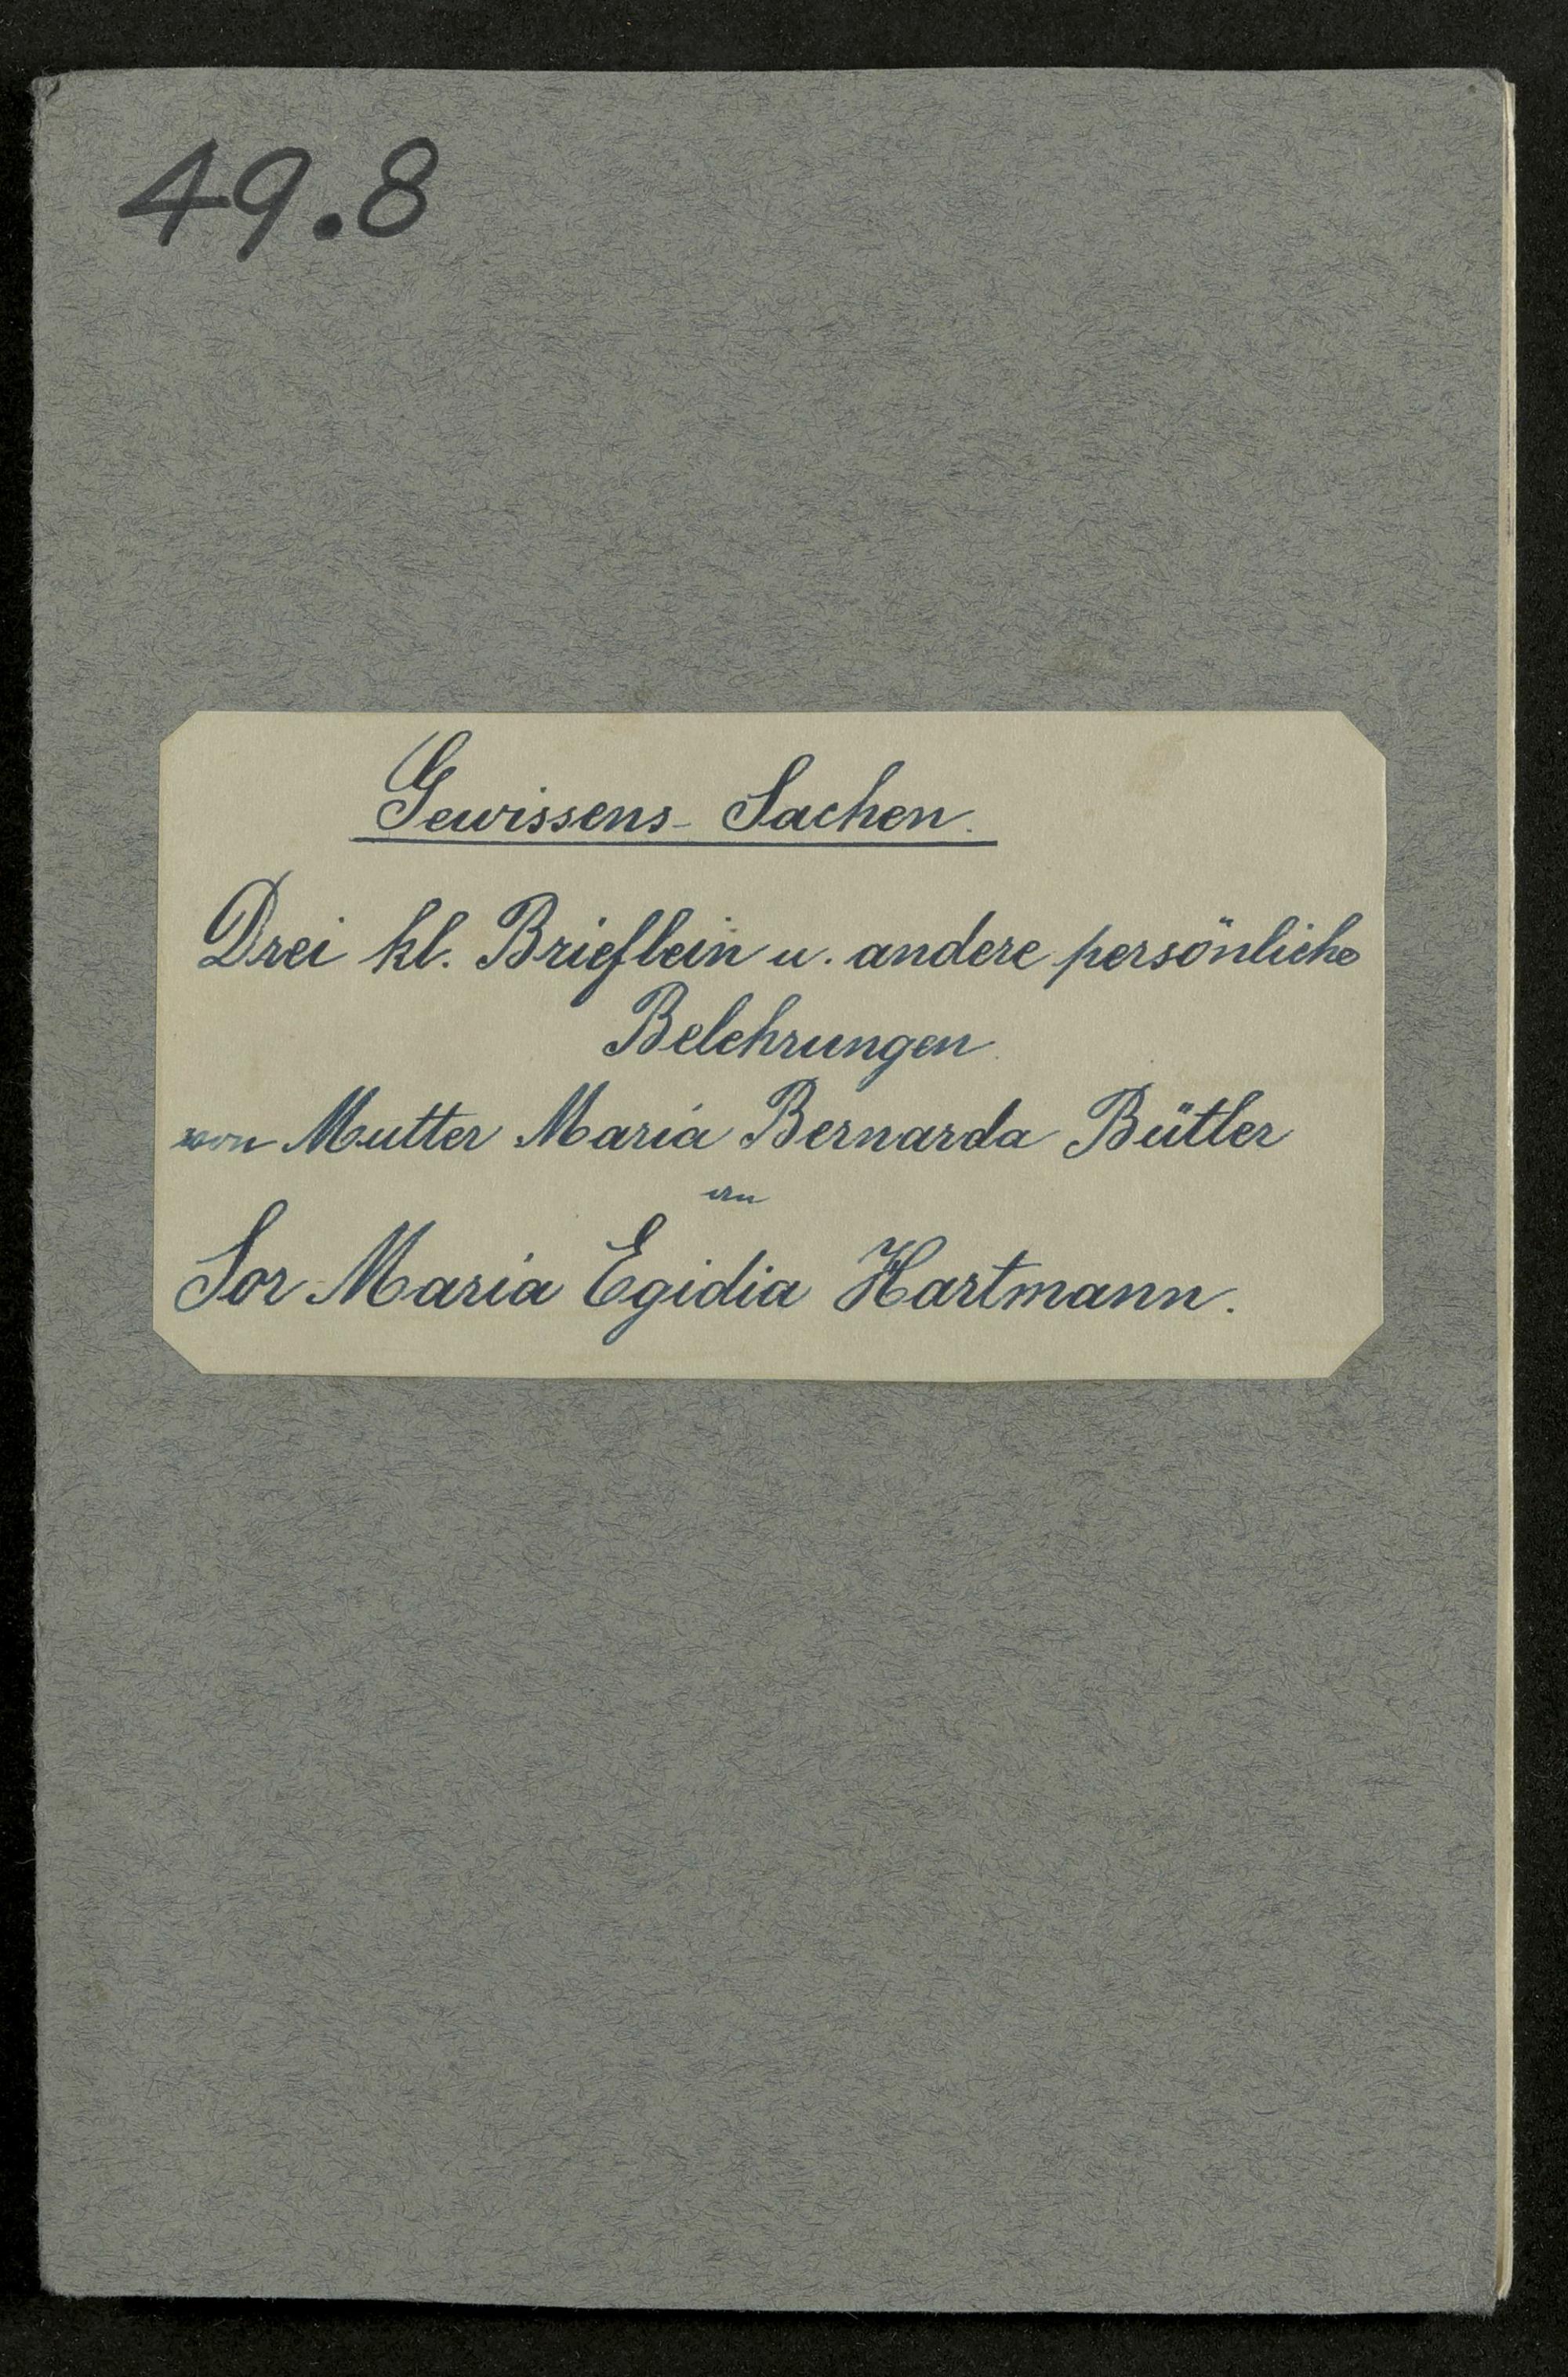 49.8
Gewissens- Sachen.
Drei kl. Brieflein u. andere persönliche
Belehrungen
von Mutter Maria Bernarda Bütler
an
Sor Maria Egidia Hartmann.